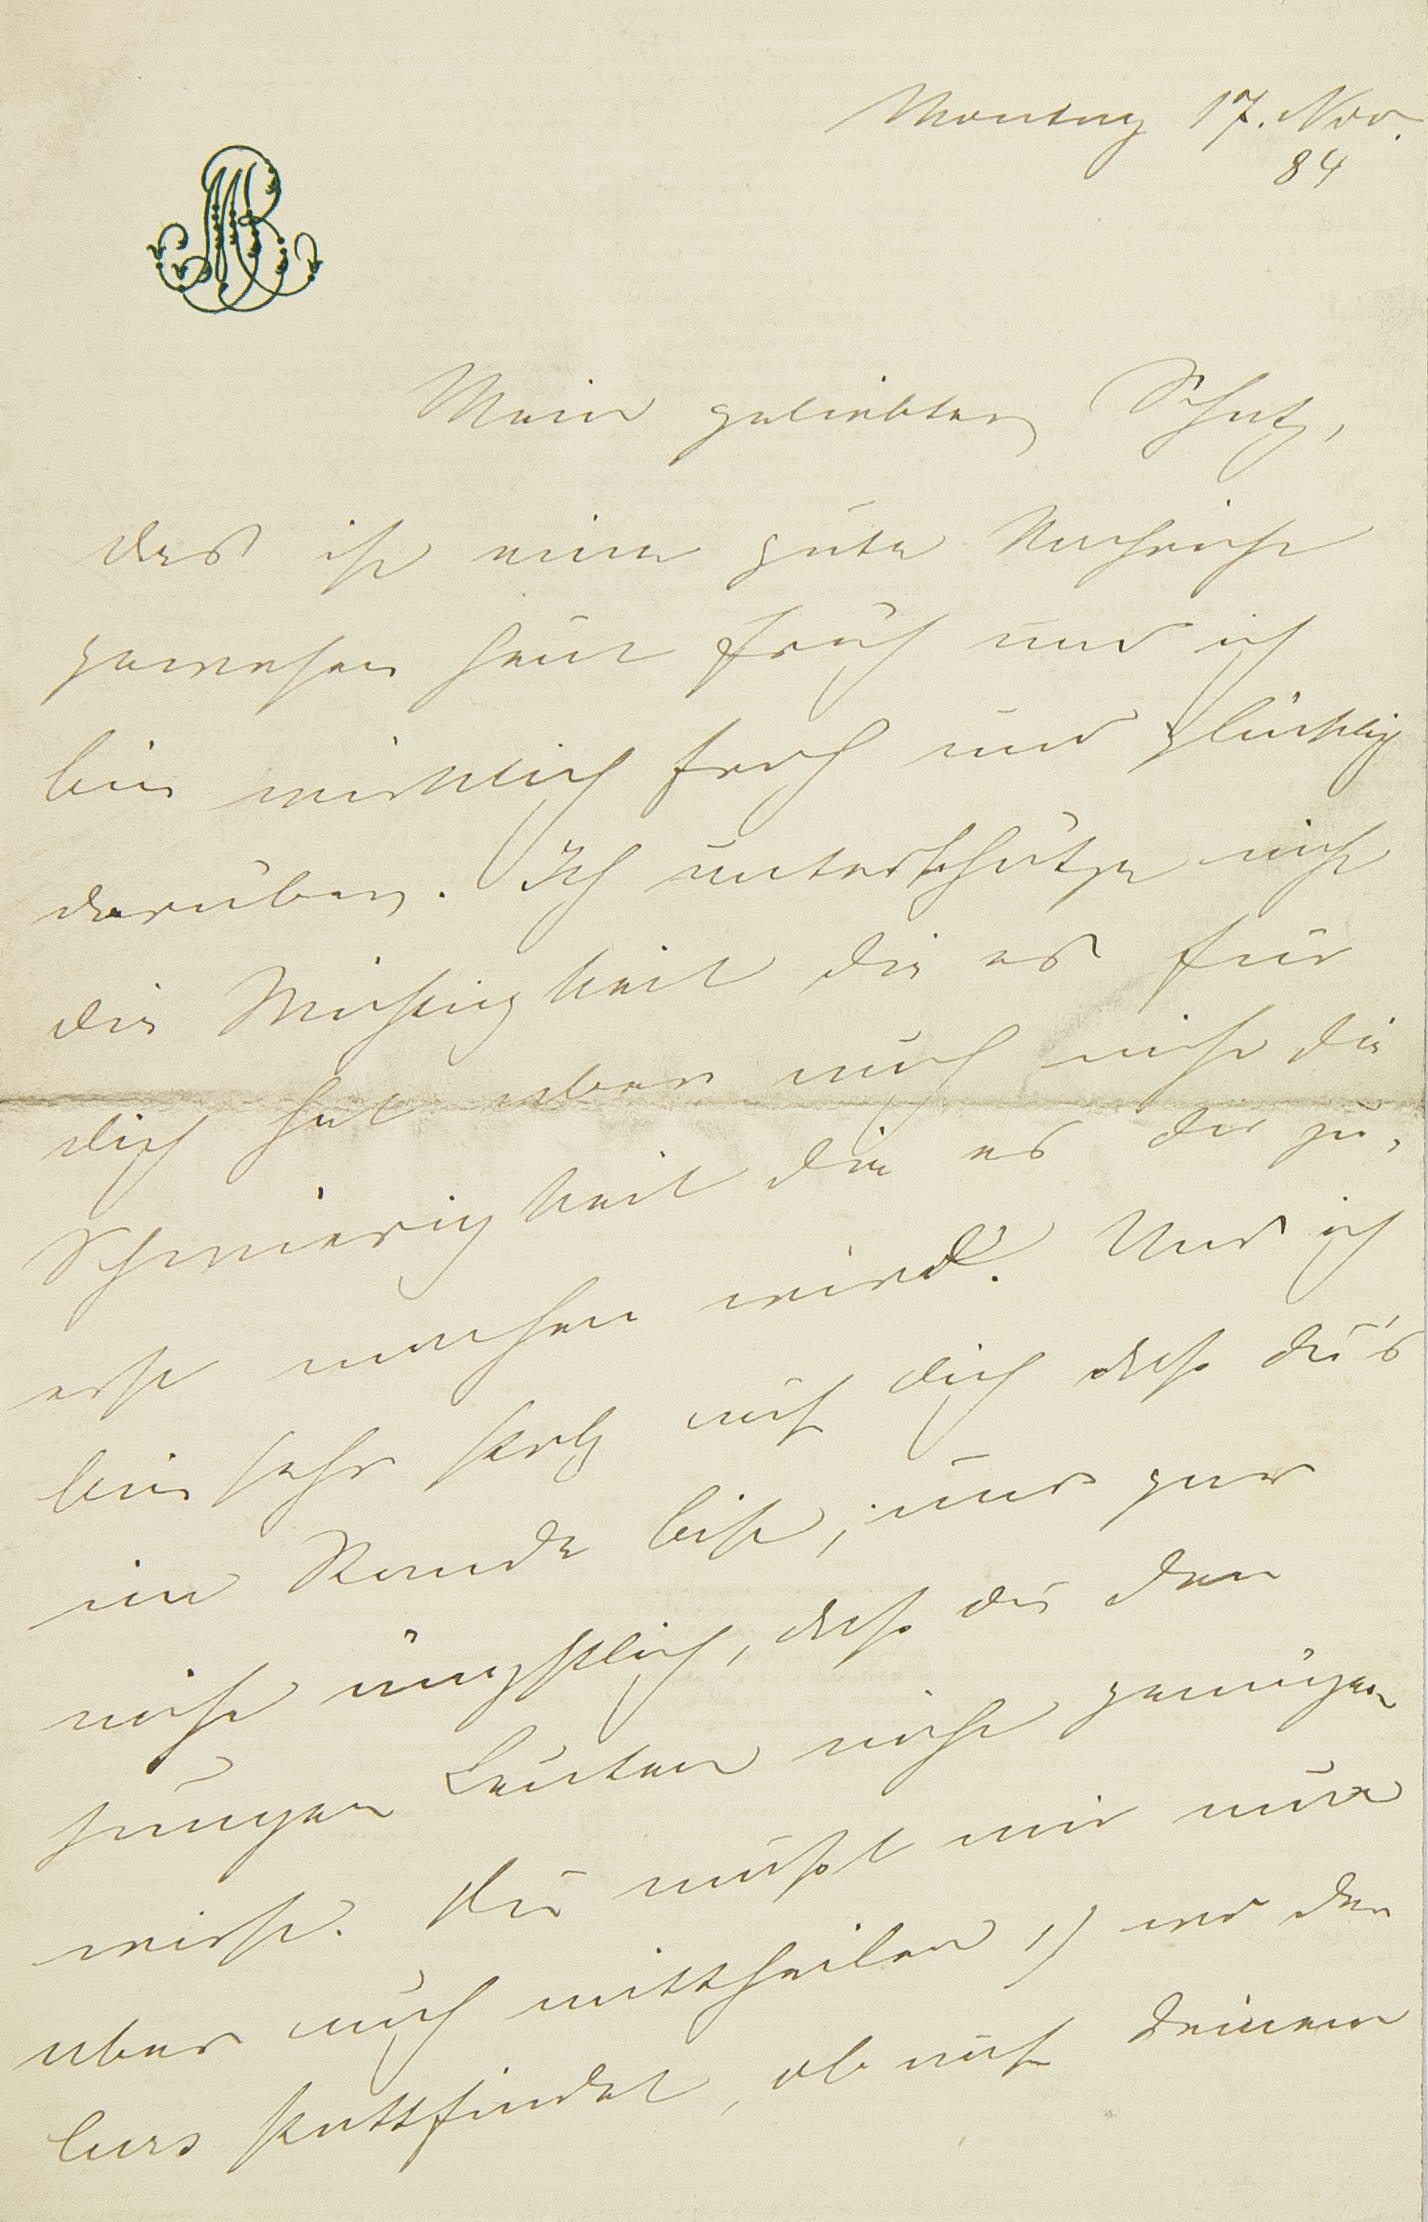 Montag 17. Nov.
84
MB
Mein geliebter Schatz,
das ist eine gute Nachricht
gewesen heut früh und ich
bin wirklich froh und glücklich
darüber. Ich unterschätze nicht
die Wichtigkeit die es für
dich hat aber auch nicht die
Schwierigkeit die es dir zu-
erst machen wird. Und ich
bin sehr stolz auf dich daß du's
im Stande bist, und gar
nicht ängstlich, daß du den
jungen Leuten nicht genügen
wirst. Du mußt mir nur
aber auch mittheilen 1) wo der
Curs stattfindet, ob auf Deinem